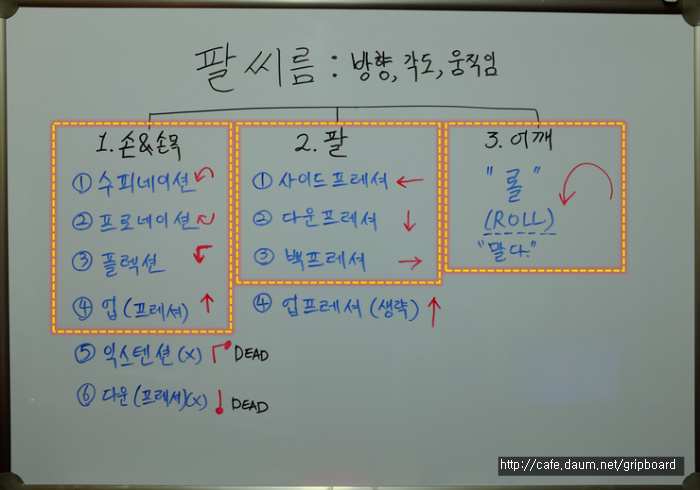 팔씨름 : 방향, 각도, 움직임
1. 손&손목
① 수피네이션
② 프로네이션
③ 플렉션
④ 업 (프레셔)
⑤ 익스텐션 (X) DEAD
⑥ 다운 (프레셔)(X) DEAD
2. 팔
① 사이드프레셔
② 다운프레셔
③ 백프레셔
④ 업프레셔 (생략)
3. 어깨
"롤"
(ROLL)
"말다."
http://cafe.daum.net/gripboard